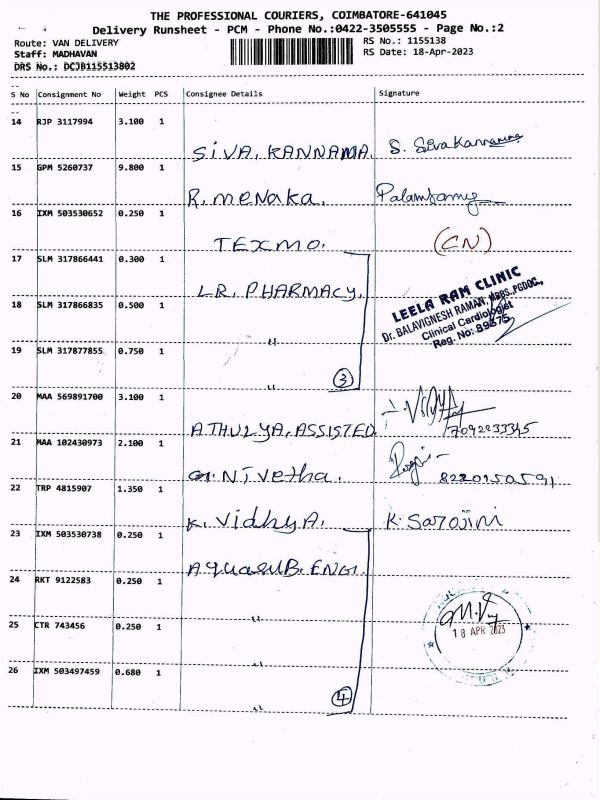 THE PROFESSIONAL COURIERS, COIMBATORE-641045
Delivery Runsheet - PCM - Phone No.:0422-3505555 - Page No.:2
Route: VAN DELIVERY RS No.: 1155138
Staff: MADHAVAN RS Date: 18-Apr-2023
DRS No.: DCJB115513802
S No Consignment No Weight PCS Consignee Details Signature
14 RJP 3117994 3.100 1
SIVA. KANNAMA. S. SivaKannama
15 GPM 5260737 9.800 1
R. meNaka.
16 IXM 503530652 0.250 1
TEXMO. (CN)
17 SLM 317866441 0.300 1
LR. PHARMACY.
LEELA RAM CLINIC
Dr. BALAVIGNESH RAMAN, MBBS.,PGDCC.,
Clinical Cardiologist
Reg. No: 89675
18 SLM 317866835 0.500 1
"
19 SLM 317877855 0.750 1
" 3
20 MAA 569891700 3.100 1
ATHULYA. ASSISTED
7092233345
21 MAA 102430973 2.100 1
G. Nivetha.
8220150591
22 TRP 4815907 1.350 1
K. VidhyA. K. Sarojini
23 IXM 503530738 0.250 1
AquasuB. ENGI.
24 RKT 9122583 0.250 1
"
25 CTR 743456 0.250 1
"
18 APR 2023
26 IXM 503497459 0.680 1
" 4